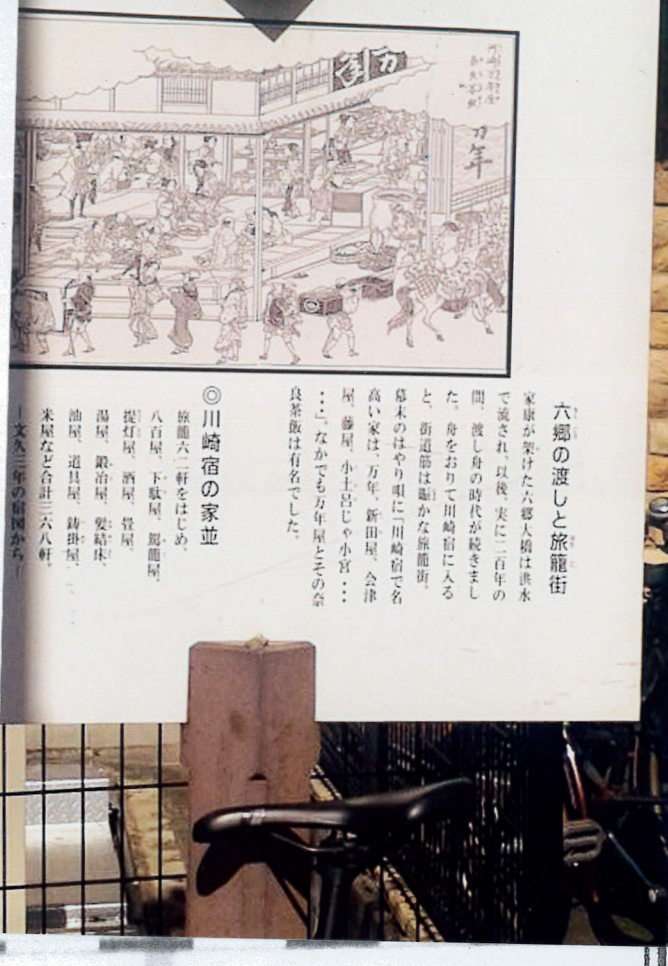 万年
万年
六郷の渡しと旅籠街
家康が架けた六郷大橋は洪水
で流され、以後、実に二百年の
間、渡し舟の時代が続きまし
た。舟をおりて川崎宿に入る
と、街道筋は賑かな旅籠街。
幕末のはやり唄に「川崎宿で名
高い家は、万年、新田屋、会津
屋、藤屋、小土呂じゃ小宮・・・
・・・」。なかでも万年屋とその奈
良茶飯は有名でした。
◎川崎宿の家並
旅籠六二軒をはじめ、
八百屋、下駄屋、駕籠屋、
提灯屋、酒屋、畳屋、
湯屋、鍛冶屋、髪結床、
油屋、道具屋、鋳掛屋、
米屋など合計三六八軒。
―文久三年の宿図から―